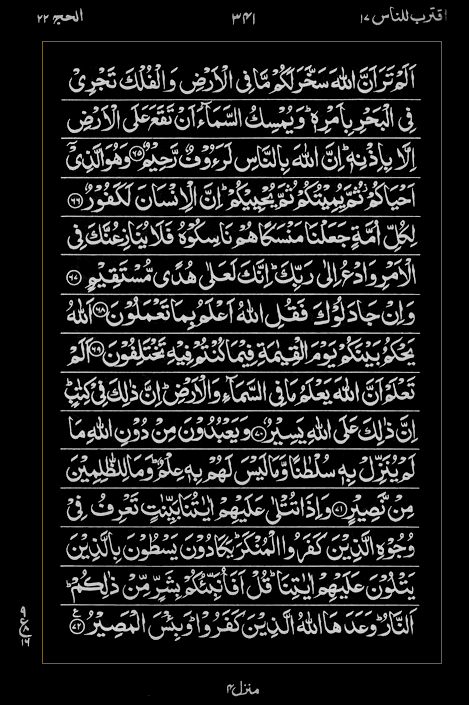 اقترب للناس ۱۷ ۳۴۱ الحج ۲۲
اَلَمْ تَرَ اَنَّ اللّٰهَ سَخَّرَ لَكُمْ مَّا فِی الْاَرْضِ وَالْفُلْكَ تَجْرِیْ
فِی الْبَحْرِ بِاَمْرِهٖ ؕ وَیُمْسِكُ السَّمَآءَ اَنْ تَقَعَ عَلَی الْاَرْضِ
اِلَّا بِاِذْنِهٖ ؕ اِنَّ اللّٰهَ بِالنَّاسِ لَرَءُوْفٌ رَّحِیْمٌ ﴿۶۵﴾ وَهُوَ الَّذِیْۤ
اَحْیَاكُمْ ؗ ثُمَّ یُمِیْتُكُمْ ثُمَّ یُحْیِیْكُمْ ؕ اِنَّ الْاِنْسَانَ لَكَفُوْرٌ ﴿۶۶﴾
لِكُلِّ اُمَّةٍ جَعَلْنَا مَنْسَكًا هُمْ نَاسِكُوْهُ فَلَا یُنَازِعُنَّكَ فِی
الْاَمْرِ وَادْعُ اِلٰی رَبِّكَ ؕ اِنَّكَ لَعَلٰی هُدًی مُّسْتَقِیْمٍ ﴿۶۷﴾
وَاِنْ جَادَلُوْكَ فَقُلِ اللّٰهُ اَعْلَمُ بِمَا تَعْمَلُوْنَ ﴿۶۸﴾ اَللّٰهُ
یَحْكُمُ بَیْنَكُمْ یَوْمَ الْقِیٰمَةِ فِیْمَا كُنْتُمْ فِیْهِ تَخْتَلِفُوْنَ ﴿۶۹﴾ اَلَمْ
تَعْلَمْ اَنَّ اللّٰهَ یَعْلَمُ مَا فِی السَّمَآءِ وَالْاَرْضِ ؕ اِنَّ ذٰلِكَ فِیْ كِتٰبٍ ؕ
اِنَّ ذٰلِكَ عَلَی اللّٰهِ یَسِیْرٌ ﴿۷۰﴾ وَیَعْبُدُوْنَ مِنْ دُوْنِ اللّٰهِ مَا
لَمْ یُنَزِّلْ بِهٖ سُلْطٰنًا وَّمَا لَیْسَ لَهُمْ بِهٖ عِلْمٌ ؕ وَمَا لِلظّٰلِمِیْنَ
مِنْ نَّصِیْرٍ ﴿۷۱﴾ وَاِذَا تُتْلٰی عَلَیْهِمْ اٰیٰتُنَا بَیِّنٰتٍ تَعْرِفُ فِیْ
وُجُوْهِ الَّذِیْنَ كَفَرُوا الْمُنْكَرَ ؕ یَكَادُوْنَ یَسْطُوْنَ بِالَّذِیْنَ
یَتْلُوْنَ عَلَیْهِمْ اٰیٰتِنَا ؕ قُلْ اَفَاُنَبِّئُكُمْ بِشَرٍّ مِّنْ ذٰلِكُمْ ؕ
اَلنَّارُ ؕ وَعَدَهَا اللّٰهُ الَّذِیْنَ كَفَرُوْا ؕ وَبِئْسَ الْمَصِیْرُ ﴿۷۲﴾ ع
۹
ع ۸
۱۶
منزل ۴